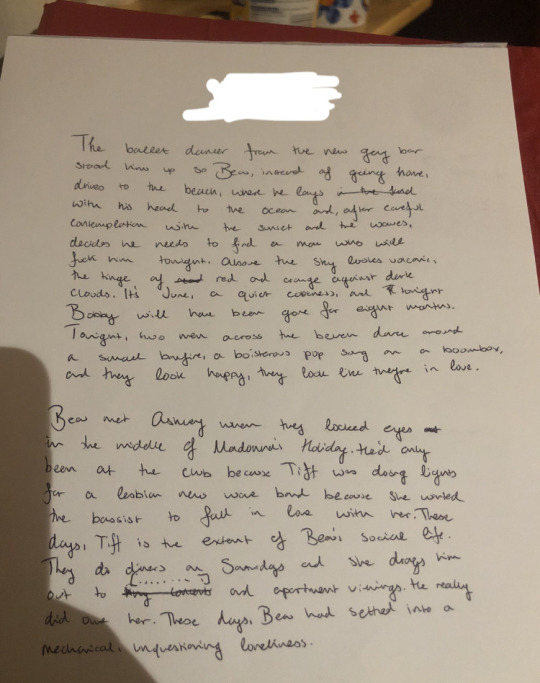 The ballet dancer from the new gay bar
stood him up so Beau, instead of going home,
drives to the beach, where he lays in the sand
with his head to the ocean and, after careful
contemplation with the sunset and the waves,
decides he needs to find a man who will
fuck him tonight. Above the sky looks vacant,
the tinge of red and orange against dark
clouds. It's June, a quiet coolness, and tonight
Bobby will have been gone for eight months.
Tonight, two men across the beach dance around
a small bonfire, a boisterous pop song on a boombox,
and they look happy, they look like they're in love.
Beau met Ashley when they locked eyes
in the middle of Madonna's Holiday. He'd only
been at the club because Tift was doing lights
for a lesbian new wave band because she wanted
the bassist to fall in love with her. These
days, Tift is the extent of Beau's social life.
They do diners on Sundays and she drags him
out to [.........] and apartment viewings. He really
did owe her. These days, Beau had settled into a
mechanical, unquestioning loneliness.